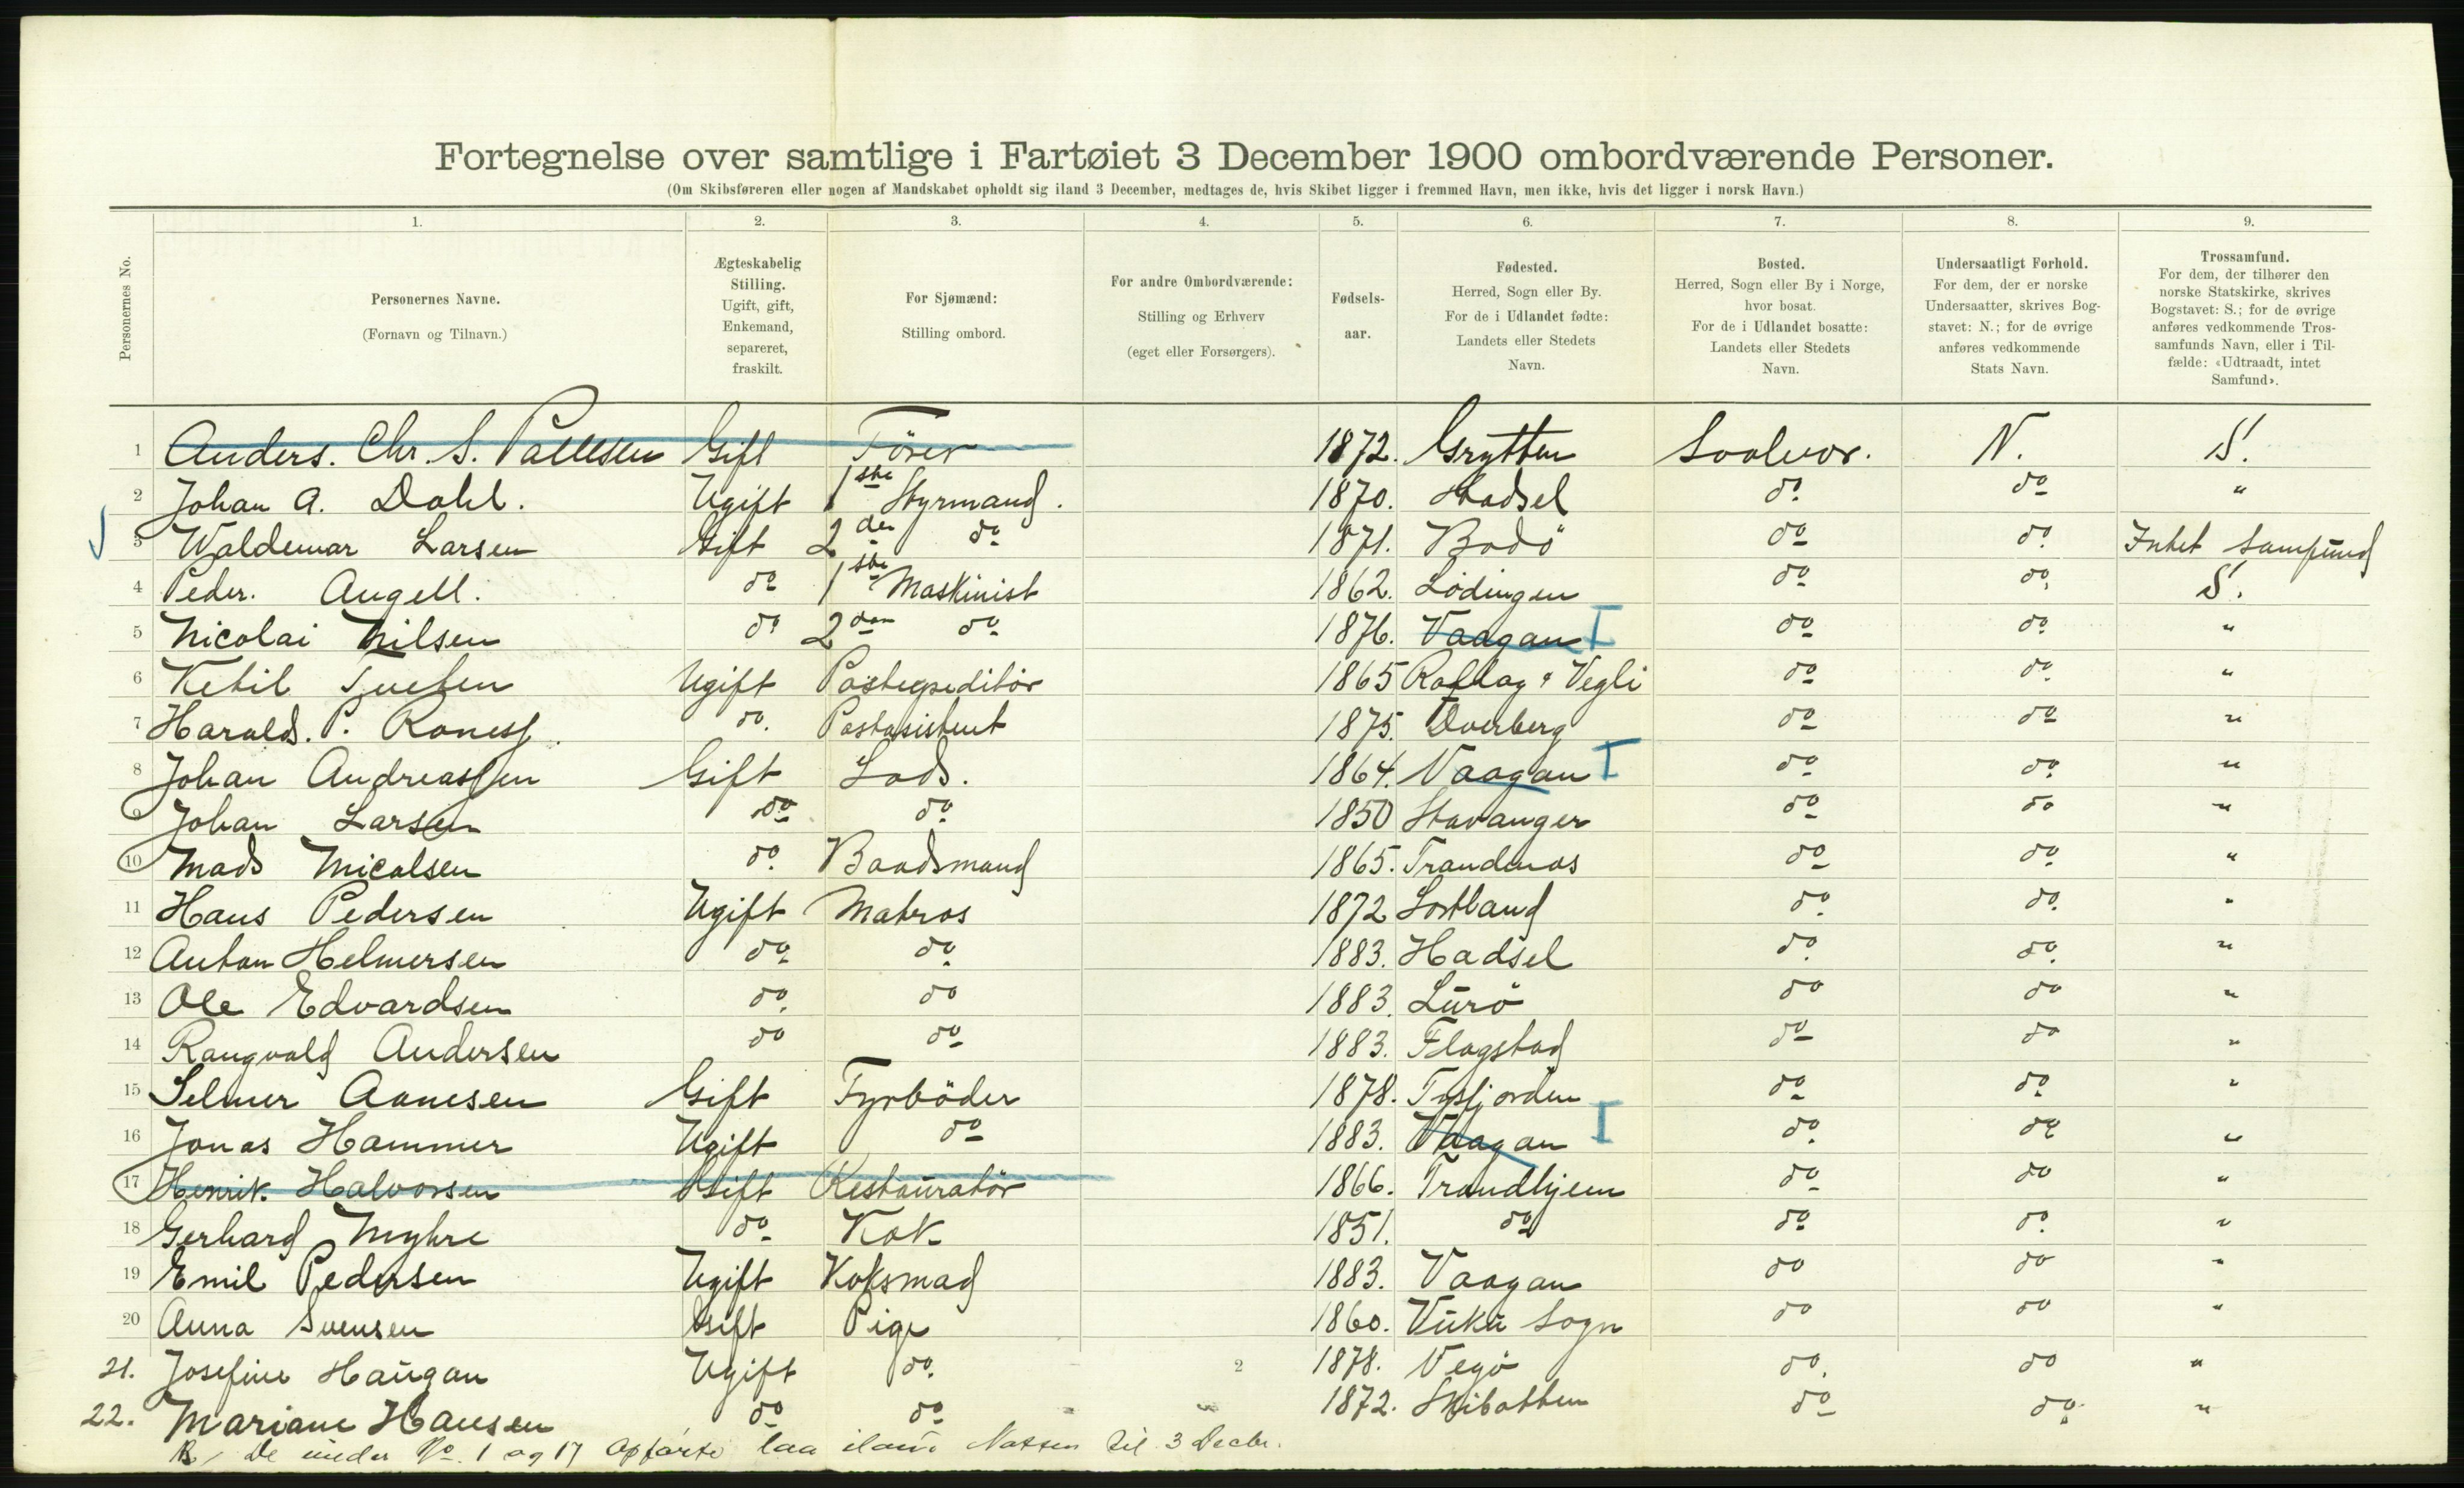 Fortegnelse over samtlige i Fartøiet 3 December 1900 ombordværende Personer.
(Om Skibsføreren eller nogen af Mandskabet opholdt sig iland 3 December, medtages de, hvis Skibet ligger i fremmed Havn, men ikke, hvis det ligger i norsk Havn.)
1. 2. 3. 4. 5. 6. 7. 8. 9.
Personernes No.
Personernes Navne.
(Fornavn og Tilnavn.)
Ægteskabelig
Stilling.
Ugift, gift,
Enkemand,
separeret,
fraskilt.
For Sjømænd:
Stilling ombord.
For andre Ombordværende:
Stilling og Erhverv
(eget eller Forsørgers).
Fødsels-
aar.
Fødested.
Herred, Sogn eller By.
For de i Udlandet fødte:
Landets eller Stedets
Navn.
Bosted.
Herred, Sogn eller By i Norge,
hvor bosat.
For de i Udlandet bosatte:
Landets eller Stedets
Navn.
Undersaatligt Forhold.
For dem, der er norske
Undersaatter, skrives Bog-
stavet: N.; for de øvrige
anføres vedkommende
Stats Navn.
Trossamfund.
For dem, der tilhører den
norske Statskirke, skrives
Bogstavet: S.; for de øvrige
anføres vedkommende Tros-
samfunds Navn, eller i Til-
fælde: «Udtraadt, intet
Samfund».
1 Anders. Chr. S. Pallesen Gift Förer 1872. Grytten Svolvær. N. S.
2 Johan A. Dahl. Ugift 1ste Styrmand. 1870. Hadsel do do "
3 Waldemar Larsen Gift 2den do 1871. Bodö do do Intet Samfund
4 Peder. Angell. do 1ste Maskinist 1862. Lödingen do do S.
5 Nicolai Nilsen do 2den do 1876. Vaagan I do do "
6 Ketil Ugift Postexpeditör 1865 Rollag & Vegli do do "
7 Harald. P. do. Postasistent 1875. Dverberg do do "
8 Johan Andreassen Gift Lods. 1864. Vaagan I do do "
9 Johan Larsen do do 1850 Stavanger do do "
10 Mads Micalsen do Baadsmand 1865. Trandenæs do do "
11 Hans Pedersen Ugift Matros 1872 do do "
12 Anton Helmersen do do 1883. Hadsel do do "
13 Ole Edvardsen do do 1883. Lurö do do "
14 Rangvald Andersen do do 1883. Flagstad do do "
15 Selmer Aanesen Gift Fyrböder 1878. do do "
16 Jonas Hammer Ugift do 1883. Vaagan I do do "
17 Henrik. Halvorsen Gift Restauratör 1866. Trondhjem do do "
18 Gerhard Myhre do Kok 1851. do do do "
19 Emil Pedersen Ugift Koksmad 1883. Vaagan do do "
20 Anna Svensen Gift Pige 1860. Vuku Sogn do do "
21. Josefine Haugan Ugift do. 2 1878. Vegö do. do "
22. Mariane Hansen do do 1872. Skibotten do do "
De under No. 1 og 17 opförte laa iland Natten til 3 Decbr.